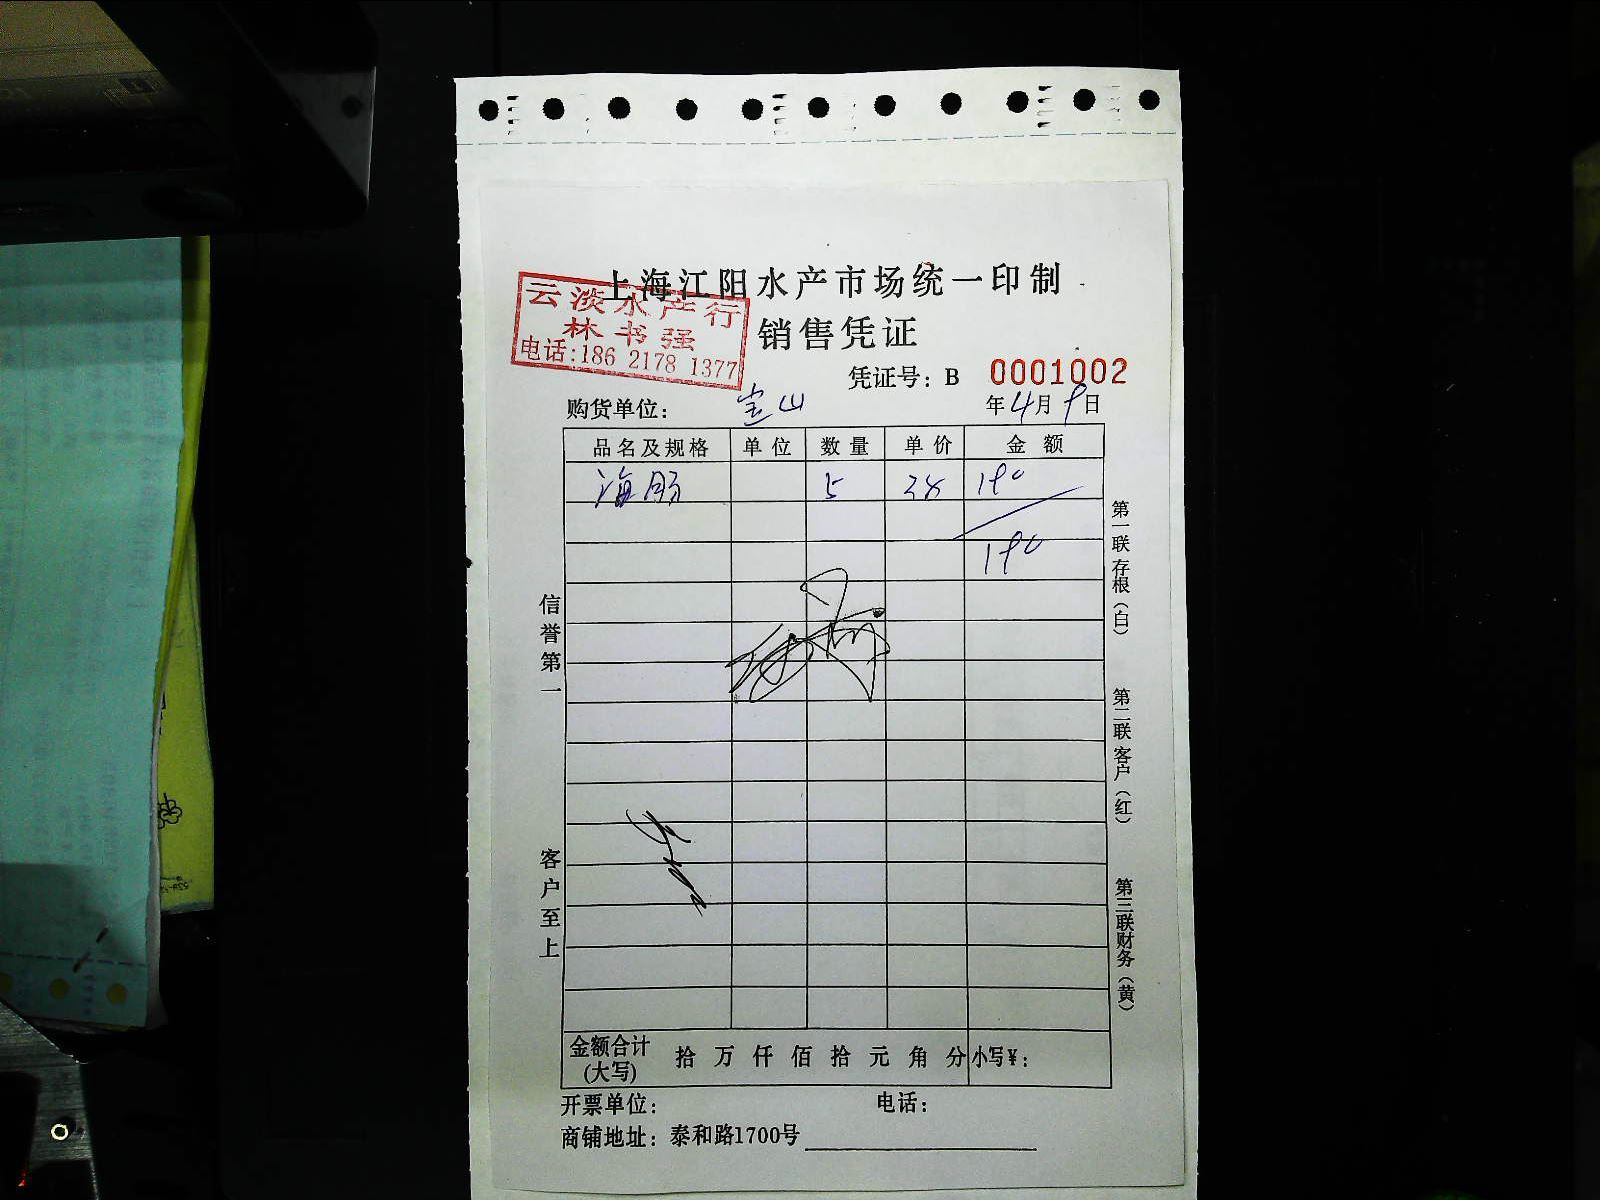 上海江阳水产市场统一印制
云淡水产行
林书强
电话:186 2178 1377
销售凭证
凭证号：B 0001002
购货单位： 宝山 年4月9日
品名及规格 单位 数量 单价 金额
海肠 5 38 190
190
信誉第一
客户至上
第一联存根（白）
第二联客户（红）
第三联财务（黄）
金额合计(大写) 拾 万 仟 佰 拾 元 角 分 小写¥：
开票单位： 电话：
商铺地址：泰和路1700号